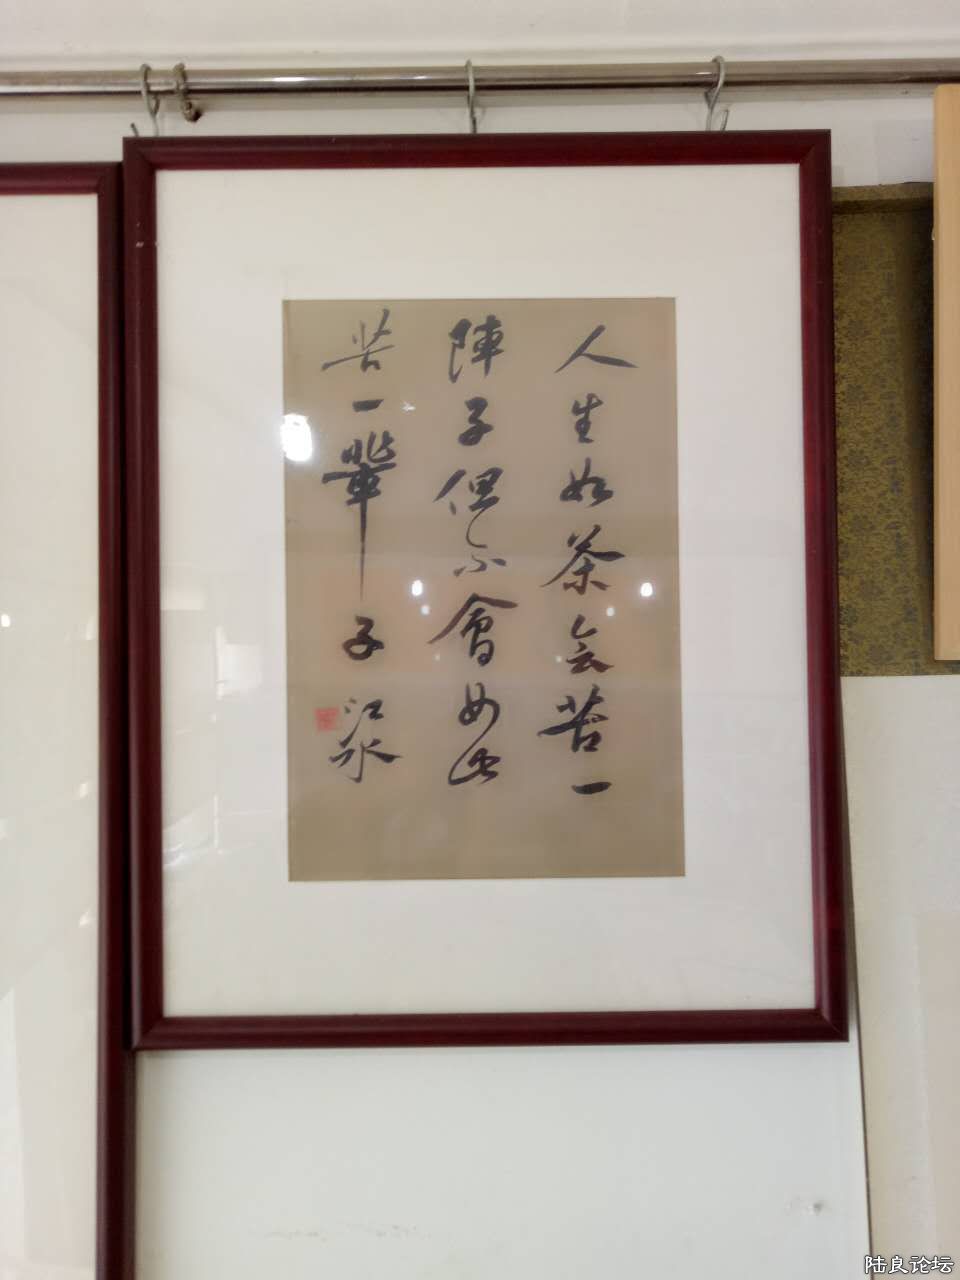 人生如茶会苦一
陣子但不會如此
苦一輩子 江水
陆良论坛